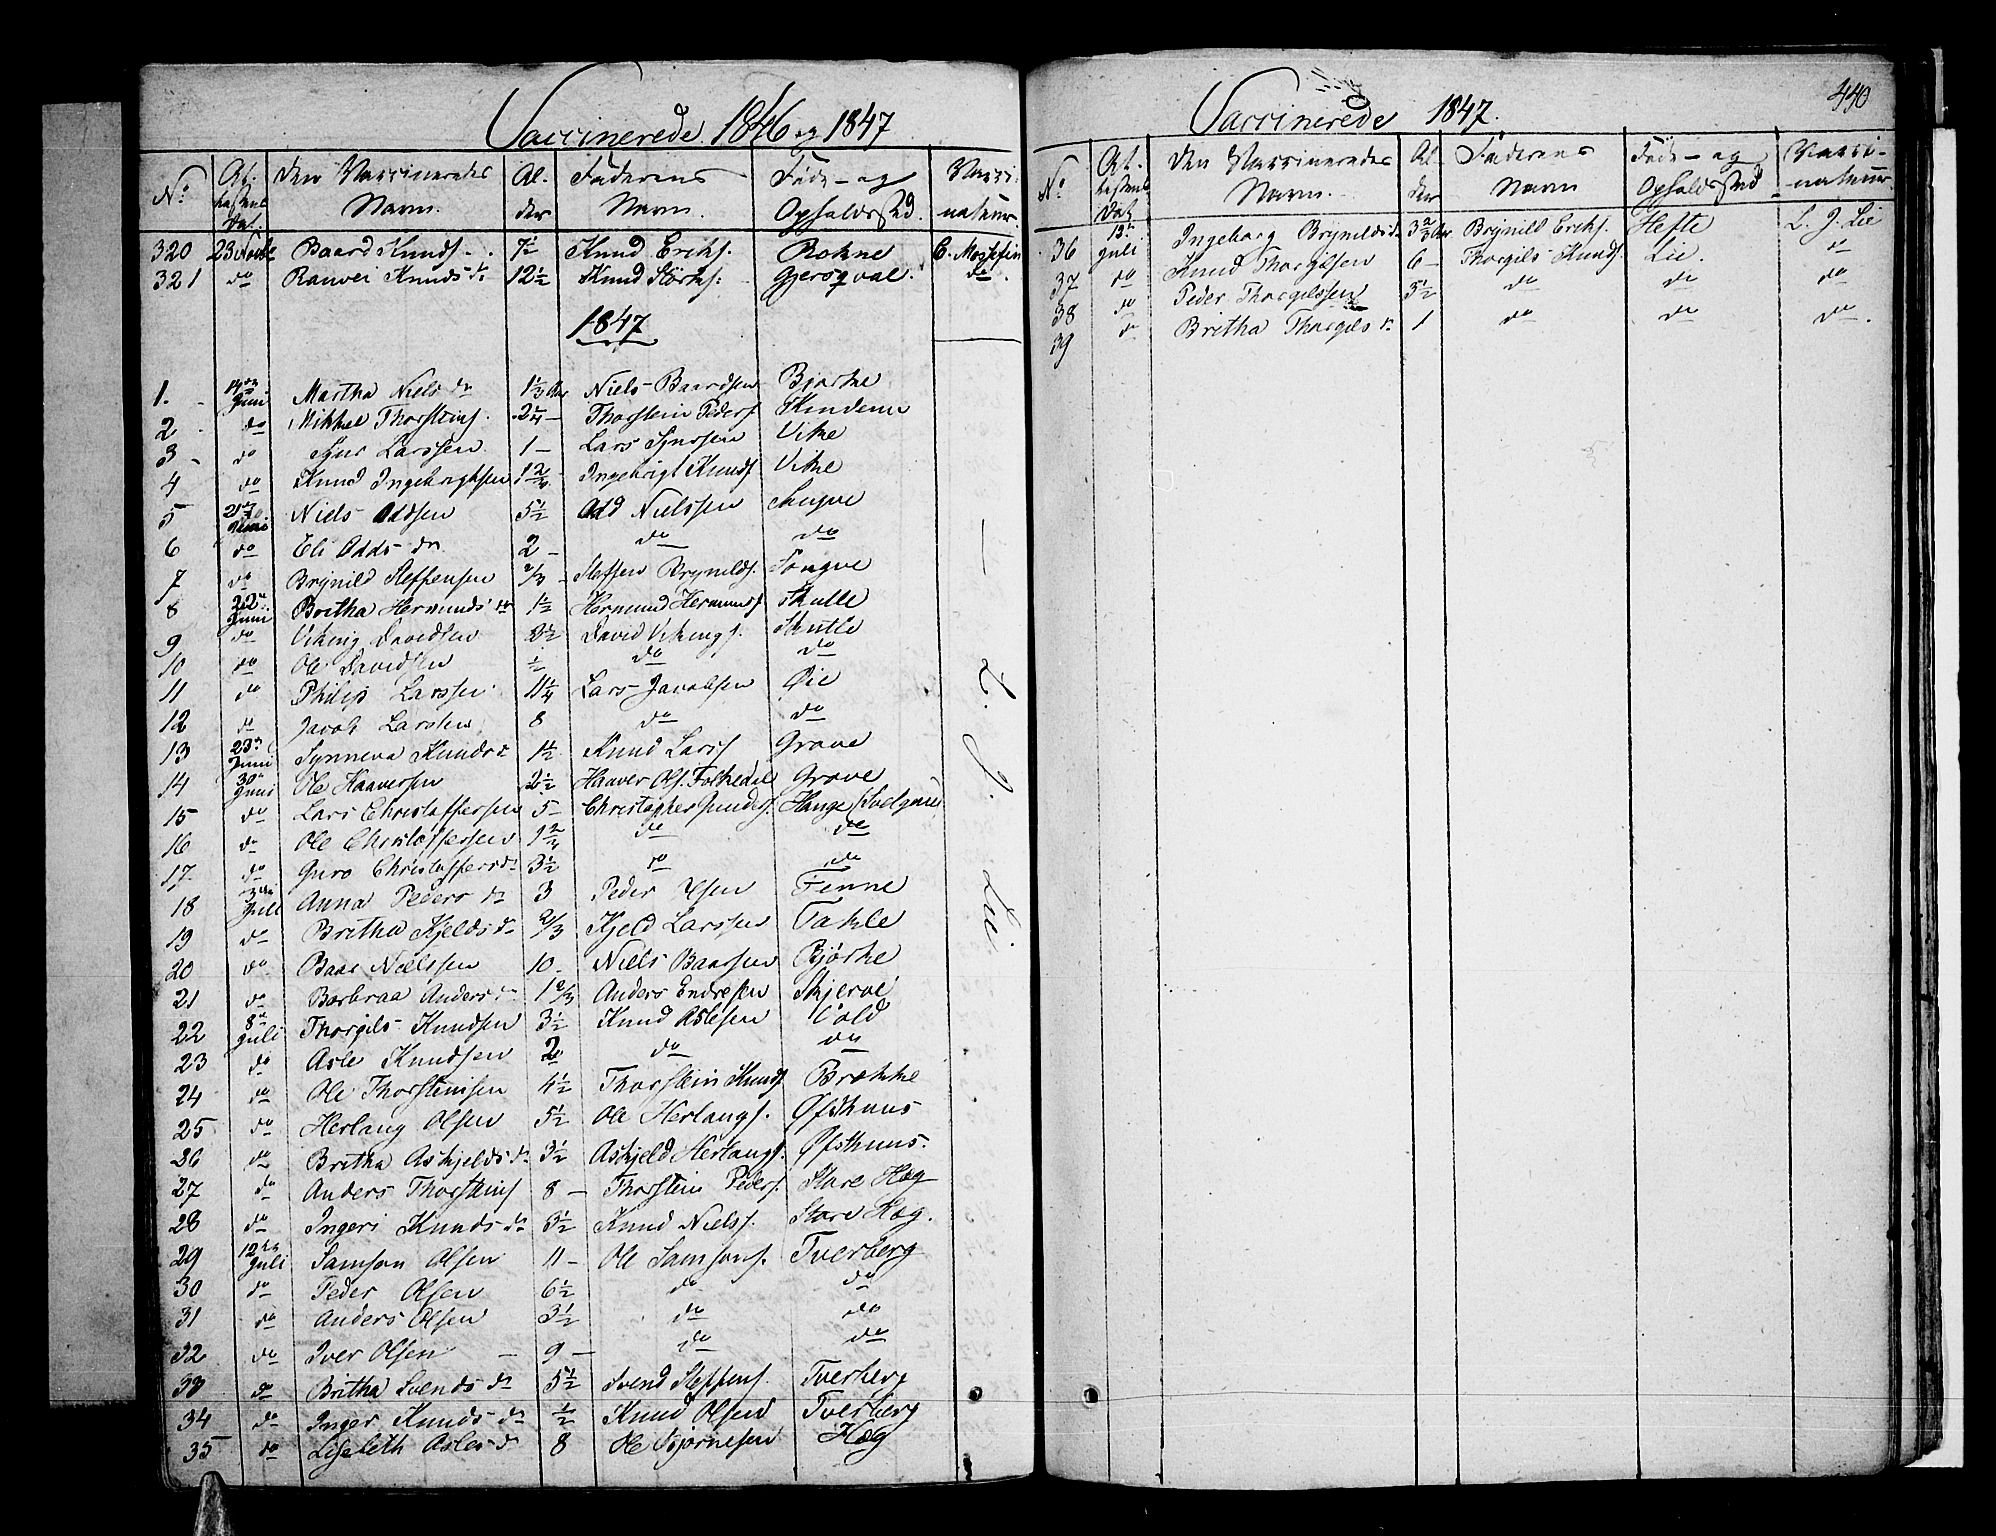 Vaccinerede 1846 og 1847
No. At- testens Dat. Den Vaccineredes Navn. Al- der Faderens Navn. Føde- og Opholdssted. Vacci- nateur
320 23 Baard Knuds. 7 1/2 Knud Eriks. Rokne
321 do Ranvei Knudsdr 12 1/2 Knud Størks. Gjersqval. do
1847
1. 14de Juni Martha Nielsdr 1 1/3 Aar Niels Baardsen Bjørke
2 do Mikkel Thorsteins. 2 1/4 - Thorstein Peders. Skindem
3 - do Sjur Larssen 1 - Lars Sjursen Vike
4 do Knud Ingebrigtsen 1 2/4 - Ingebrigt Knuds. Vike
5 21de Juni Niels Oddsen 5 1/2 Odd Nielssen
6 do Eli Oddsdr. 2 - do do
7 do Brynild Steffensen 2/3 - Steffen Brynilds.
8 22de Juni Britha Hermundsdr 1 1/2 Hermund Hermunds. Skutle
9 do Viking Davidsen 3 1/2 David Vikings. Skutle
10 do Ole Davidsen 1/2 do do
11 do Philip Larssen 11 1/4 Lars Jacobsen Øie
12 do Jacob Larssen 8 do do
13 23de Juni Synneva Knudsdr 1 1/2 Knud Larss. Grove
14 30de Juni Ole Haaversen 2 1/2 Haaver Ols. Folkedal Grove
15 do Lars Christoffersen 5 - Christopher Hauge
16 do Ole Christoffersen 1 2/4 do do
17 do Guro Christoffersdr 3 1/2 do do
18 3die Juli Anna Pedersdr 3 Peder Olsen Fenne
19 do Britha Kjeldsdr 2/3 Kjeld Larssen Takle
20 do Baar Nielssen 10 - Niels Baarsen Bjørke
21 do Barbraa Andersdr 1 2/3 Anders Endresen Skjerve
22 8de Juli Thorgils Knudsen 3 1/2 Knud Aslesen Vold
23 do Asle Knudsen 2 do do
24 do Ole Thorsteinsen 4 1/2 Thorstein Knuds. Brekke
25 do Herlaug Olsen 5 1/2 Ole Herlaugs. Øfsthuus
26 do Britha Askjeldsdr 3 1/2 Askjeld Herlaugs. Øfsthuus.
27 do Anders Thorsteins. 8 - Thorstein Peders. Store Høg
28 do Ingeri Knudsdr 3 1/2 Knud Nielss. Store Høg.
29 12te Juli Samson Olsen 11 - Ole Samsons. Tverberg
30 do Peder Olsen 6 1/2 do do
31 do Anders Olsen 3 1/2 do do
32 do Iver Olsen 9 - do do
33 do Britha Svendsdr 5 1/2 Svend Steffens. Tverberg
34 do Inger Knudsdr 1/2 Knud Olsen Tverberg
35 do Lisbeth Aslesdr 8 Ole Bjørnesen Høg
L. J. Lie
440
Vaccinerede 1847.
No. At- testens Dat. Den Vaccineredes Navn. Al- der Faderens Navn Føde- og Opholdssted Vacci- nateur
36 13de Juli Ingeborg Brynildsdr 3 2/3 Aar Brynild Eriks. Hefte L. J. Lie
37 do Knud Thorgilsen 6 - Thorgils Knuds. Lie. do
38 do Peder Thorgilssen 3 1/2 do do do
39 do Britha Thorgilsdr 1 do do do.